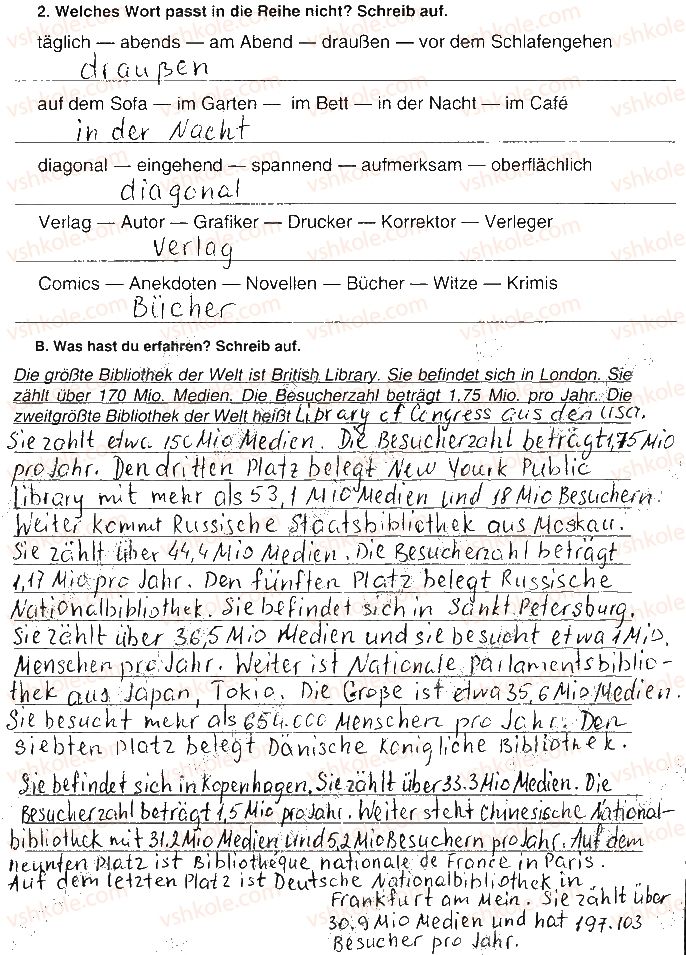 2. Welches Wort passt in die Reihe nicht? Schreib auf.
täglich — abends — am Abend — draußen — vor dem Schlafengehen
draußen
auf dem Sofa — im Garten — im Bett — in der Nacht — im Café
in der Nacht
diagonal — eingehend — spannend — aufmerksam — oberflächlich
diagonal
Verlag — Autor — Grafiker — Drucker — Korrektor — Verleger
Verlag
Comics — Anekdoten — Novellen — Bücher — Witze — Krimis
Bücher
B. Was hast du erfahren? Schreib auf.
Die größte Bibliothek der Welt ist British Library. Sie befindet sich in London. Sie
zählt über 170 Mio. Medien. Die Besucherzahl beträgt 1,75 Mio. pro Jahr. Die
zweitgrößte Bibliothek der Welt heißt Library of Congress aus den USA.
Sie zahlt etwa 150 Mio Medien. Die Besucherzahl beträgt 1,75 Mio
pro Jahr. Den dritten Platz belegt New Yourk Public
Library mit mehr als 53,1 Mio Medien und 18 Mio Besuchern.
Weiter kommt Russische Staatsbibliothek aus Moskau.
Sie zählt über 44,4 Mio Medien. Die Besucherzahl beträgt
1,17 Mio pro Jahr. Den fünften Platz belegt Russische
Nationalbibliothek. Sie befindet sich in Sankt Petersburg.
Sie zählt über 36,5 Mio Medien und sie besucht etwa 1 Mio.
Menschen pro Jahr. Weiter ist Nationale Parlamentsbiblio-
thek aus Japan, Tokio. Die Große ist etwa 35,6 Mio Medien.
Sie besucht mehr als 654.000 Menschen pro Jahr. Den
siebten Platz belegt Dänische Königliche Bibliothek.
Sie befindet sich in Kopenhagen. Sie zählt über 33.3 Mio Medien. Die
Besucherzahl beträgt 1,5 Mio pro Jahr. Weiter steht Chinesische National-
bibliothek mit 31.2 Mio Medien und 5,2 Mio Besuchern pro Jahr. Auf dem
neunten Platz ist Bibliothèque nationale de France in Paris.
Auf dem letzten Platz ist Deutsche Nationalbibliothek in
Frankfurt am Mein. Sie zählt über
30.9 Mio Medien und hat 197.103
Besucher pro Jahr.